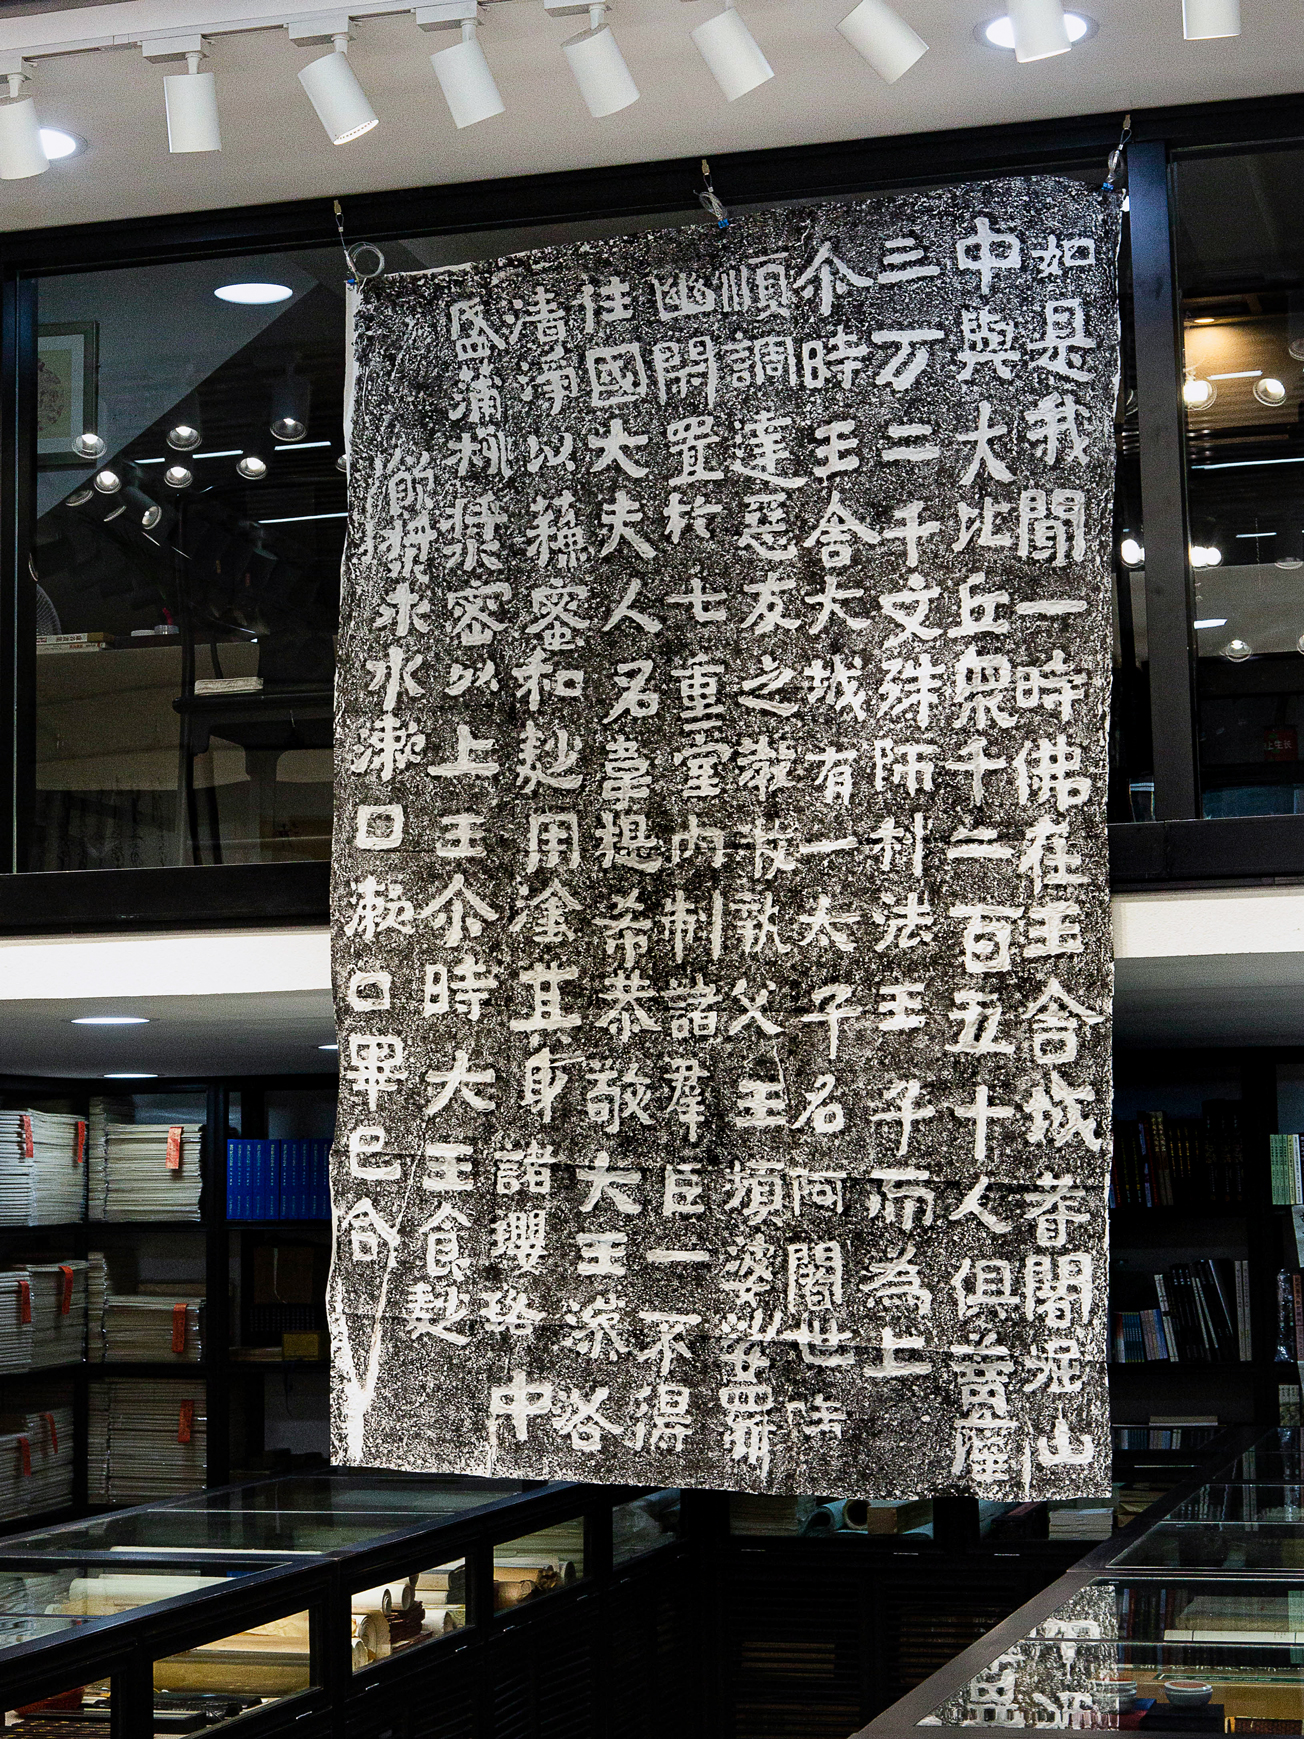 如是我聞一時佛在王舍城耆闍崛山
中與大比丘眾千二百五十人俱菩薩
三万二千文殊師利法王子而為上
尒時王舍大城有一太子名阿闍世
順調達惡友之教收執父王頻婆娑羅
幽閉置於七重室內制諸群臣一不得
往國大夫人名韋提希恭敬大王澡浴
清淨以蘇蜜和麨用塗其身諸瓔珞中
盛蒲桃漿密以上王尒時大王食麨
飲漿求水漱口漱口畢已合